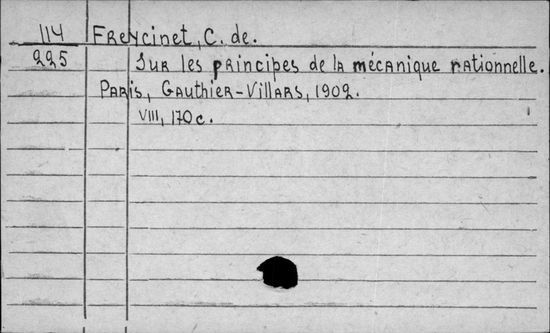 114 Freycinet, C. de.
225 Sur les principes de la mécanique rationnelle.
Paris, Gauthier-Villars, 1902.
VIII, 170 c.